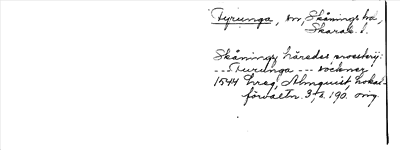 Fyrunga, sn, Skånings hd,
Skarab. l.
Skånings härads prosteri:
--- Furunga --- socknar
1544 Almquist, Lokal-
förvaltn. 3, s. 190. orig.